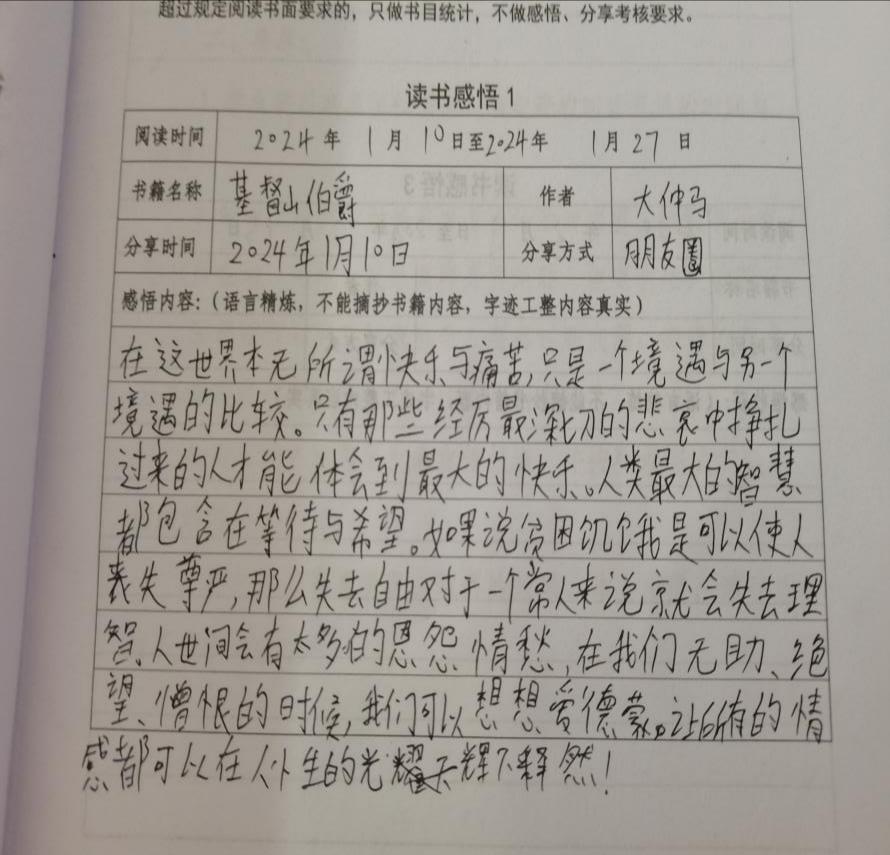 超过规定阅读书面要求的，只做书目统计，不做感悟、分享考核要求。
读书感悟1
阅读时间 2024年 1月 10日至2024年 1月27日
书籍名称 基督山伯爵 作者 大仲马
分享时间 2024年1月10日 分享方式 朋友圈
感悟内容：（语言精炼，不能摘抄书籍内容，字迹工整内容真实）
在这世界本无所谓快乐与痛苦，只是一个境遇与另一个
境遇的比较。只有那些经历最深切的悲哀中挣扎
过来的人才能体会到最大的快乐。人类最大的智慧
都包含在等待与希望。如果说贫困饥饿是可以使人
丧失尊严，那么失去自由对于一个常人来说就会失去理
智、人世间会有太多的恩怨情愁，在我们无助、绝
望、憎恨的时候，我们可以想想爱德蒙。让所有的情
感都可以在人生的光耀辉下释然！